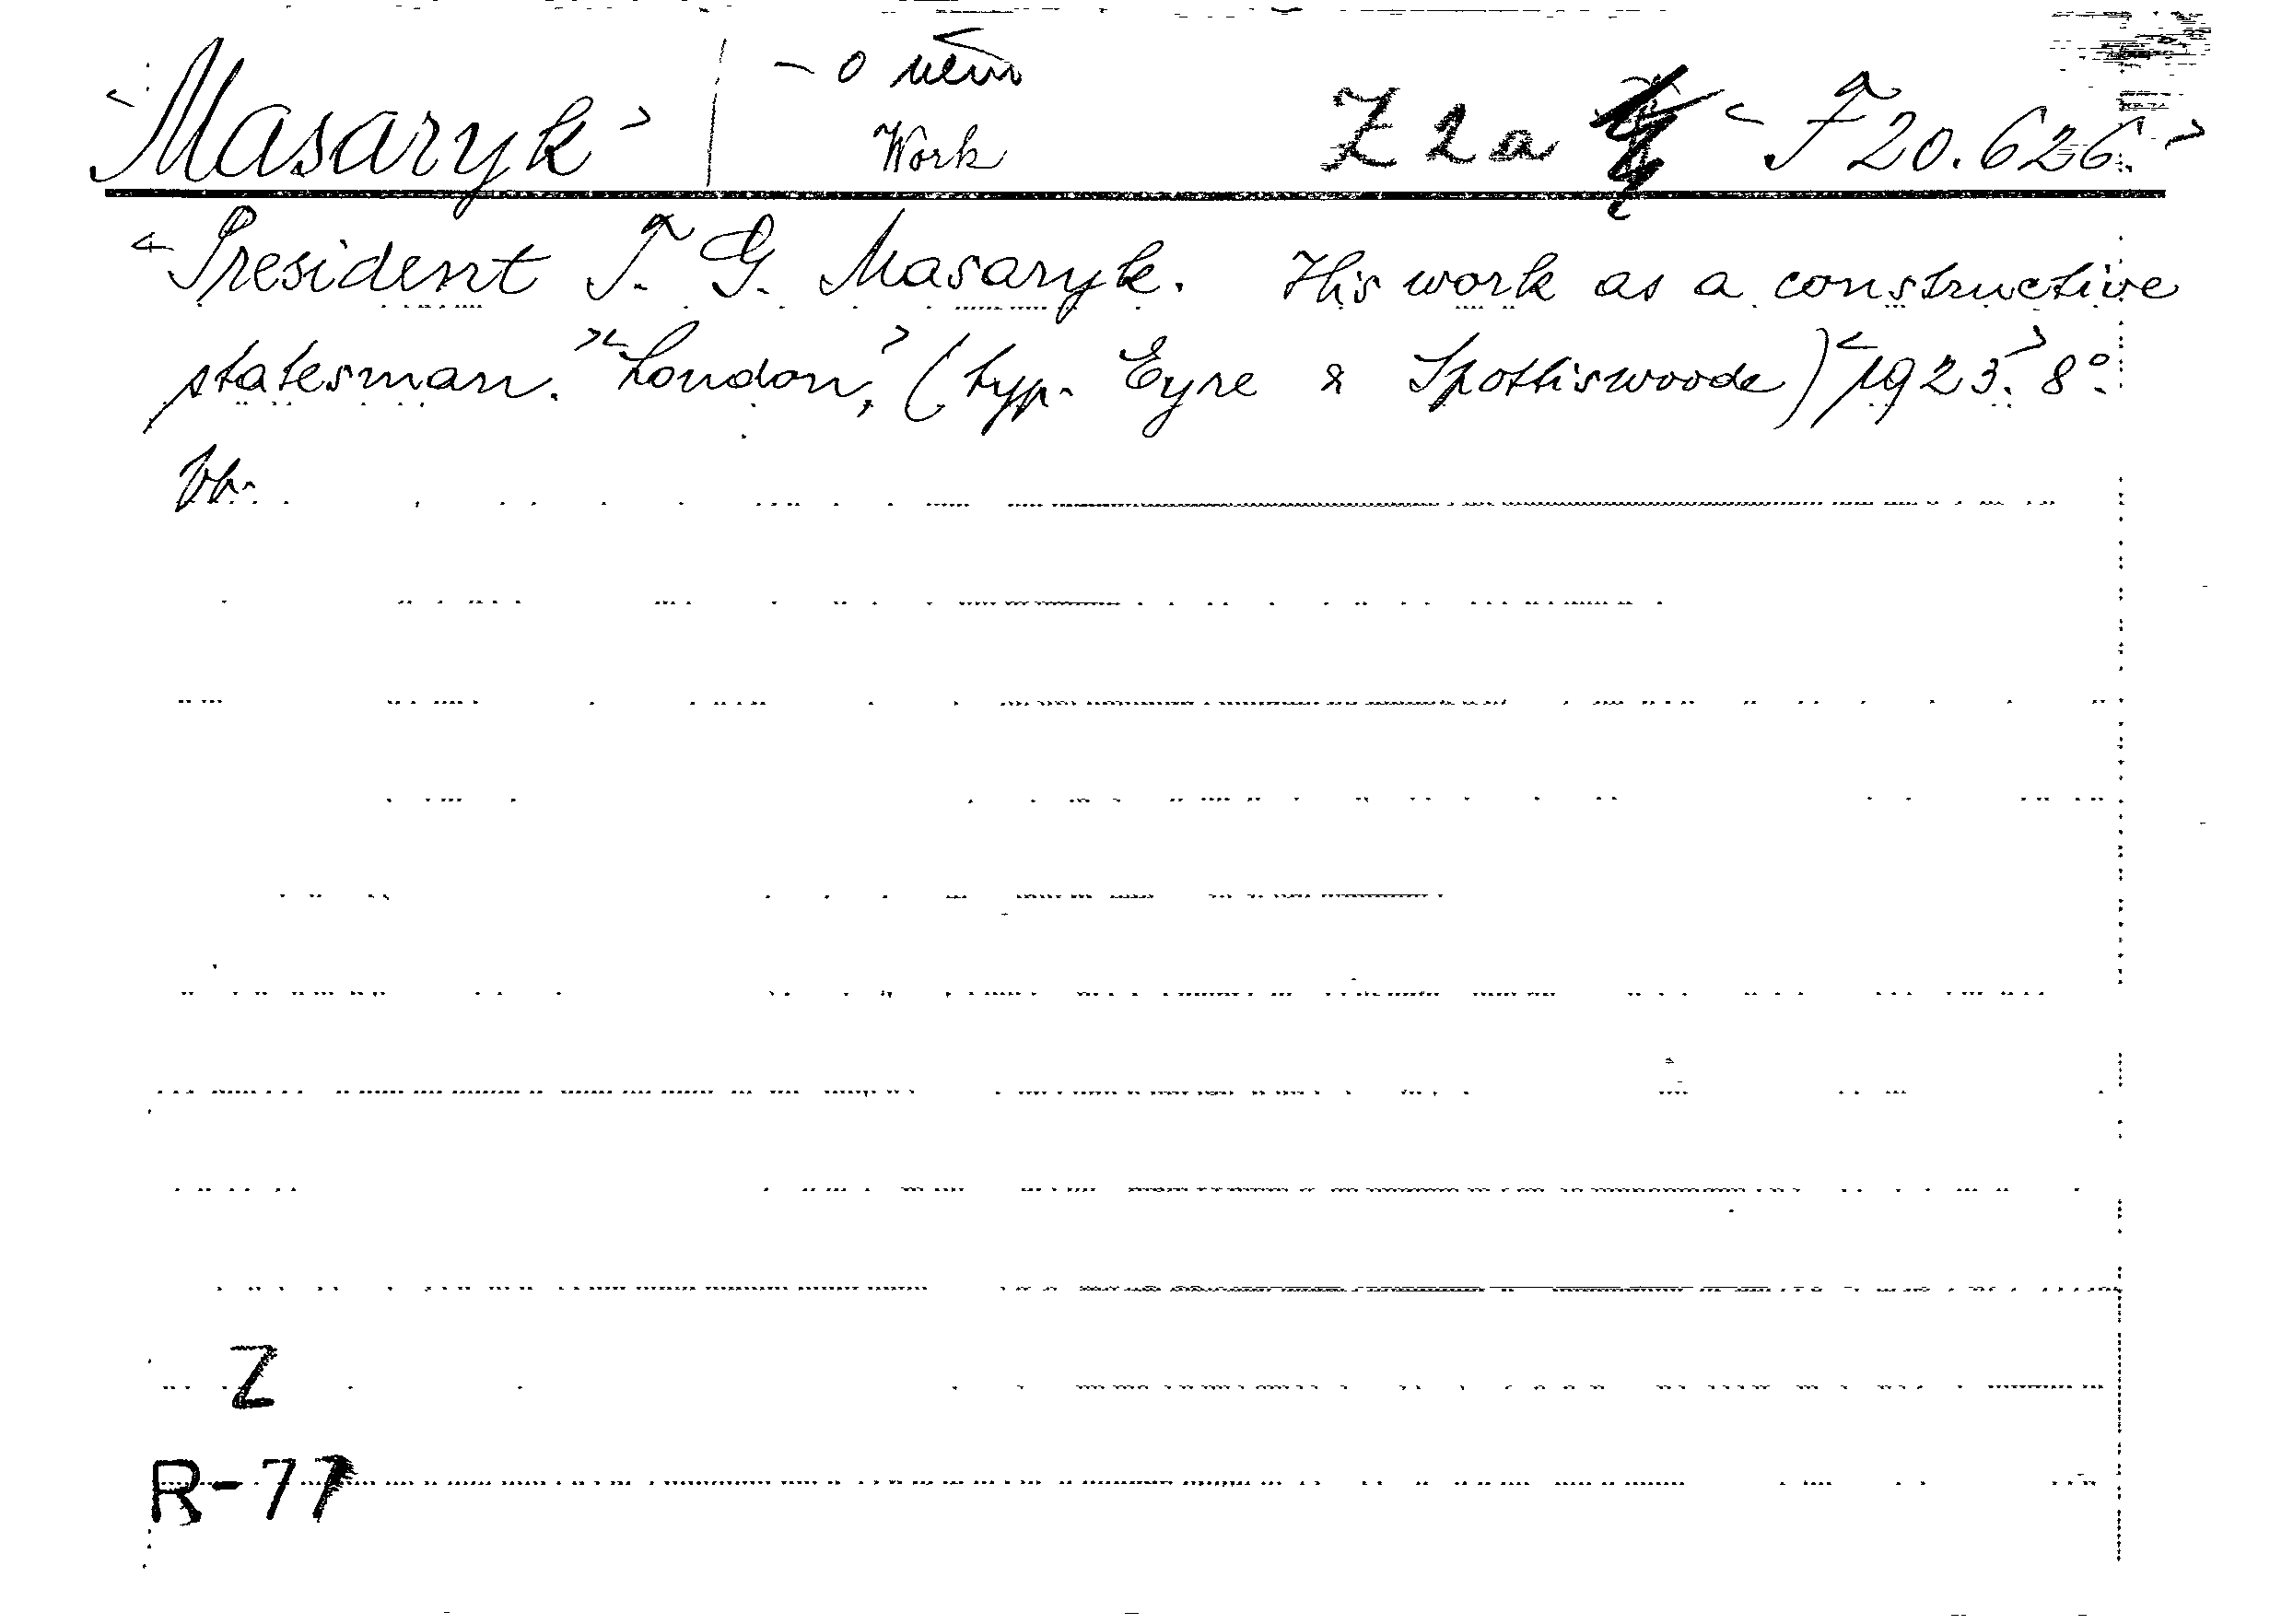 Masaryk - o něm
Work Z 2 a F 20.626.
President T. G. Masaryk. His work as a constructive
statesman. London, (typ. Eyre & Spottiswoode) 1923. 8°.
Z
R-77